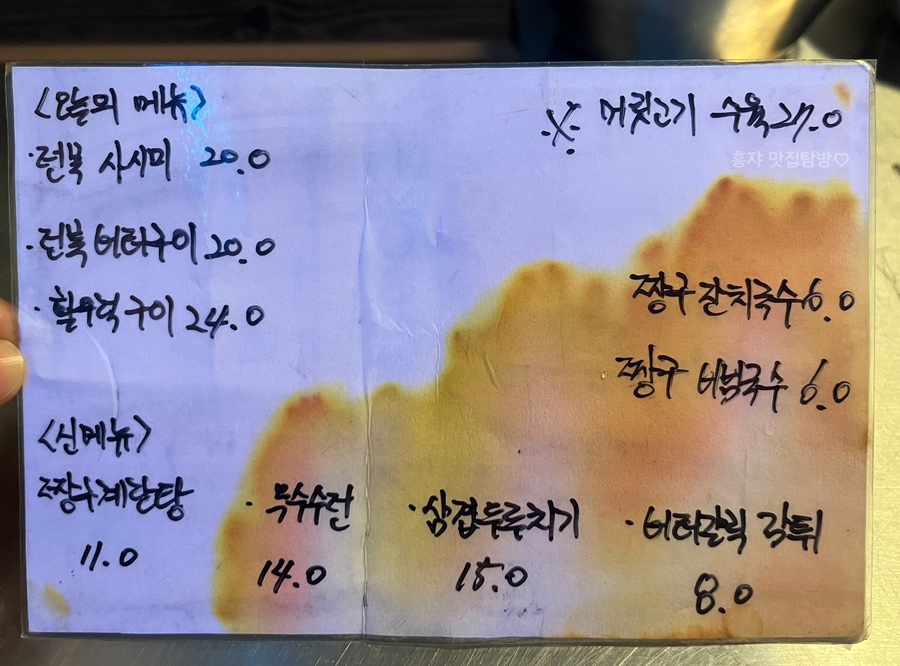 <오늘의 메뉴>
· 전복 사시미 20.0
· 전복 버터구이 20.0
· 활우럭 구이 24.0
※ 머릿고기 수육 27.0
홍쟈 맛집탐방♡
짱구 잔치국수 6.0
짱구 비빔국수 6.0
<신메뉴>
짱구계란탕
11.0
· 옥수수전
14.0
· 삼겹두루치기
15.0
· 버터갈릭 감튀
8.0